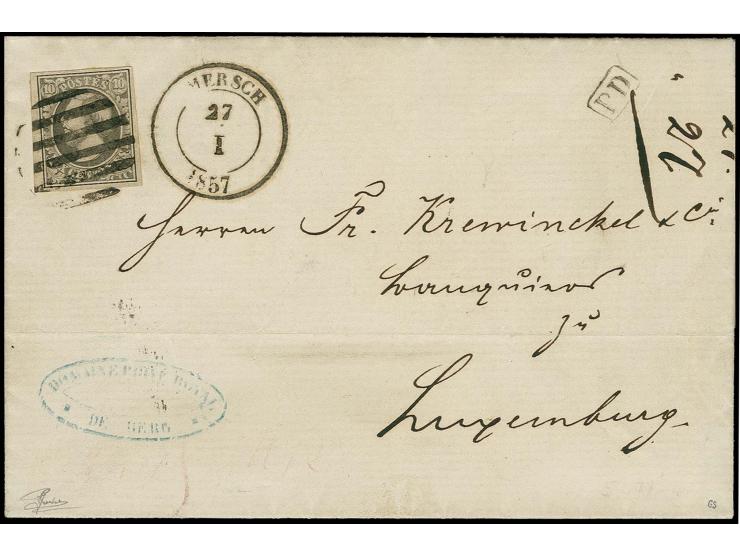 10 POSTES 10
MERSCH
27
I
1857
PD
27
Herren Fr. Krewinckel & Cie.
banquiers
zu
Luxemburg.
DOMAINE PRIVÉ ROYAL
DE BERG
GS